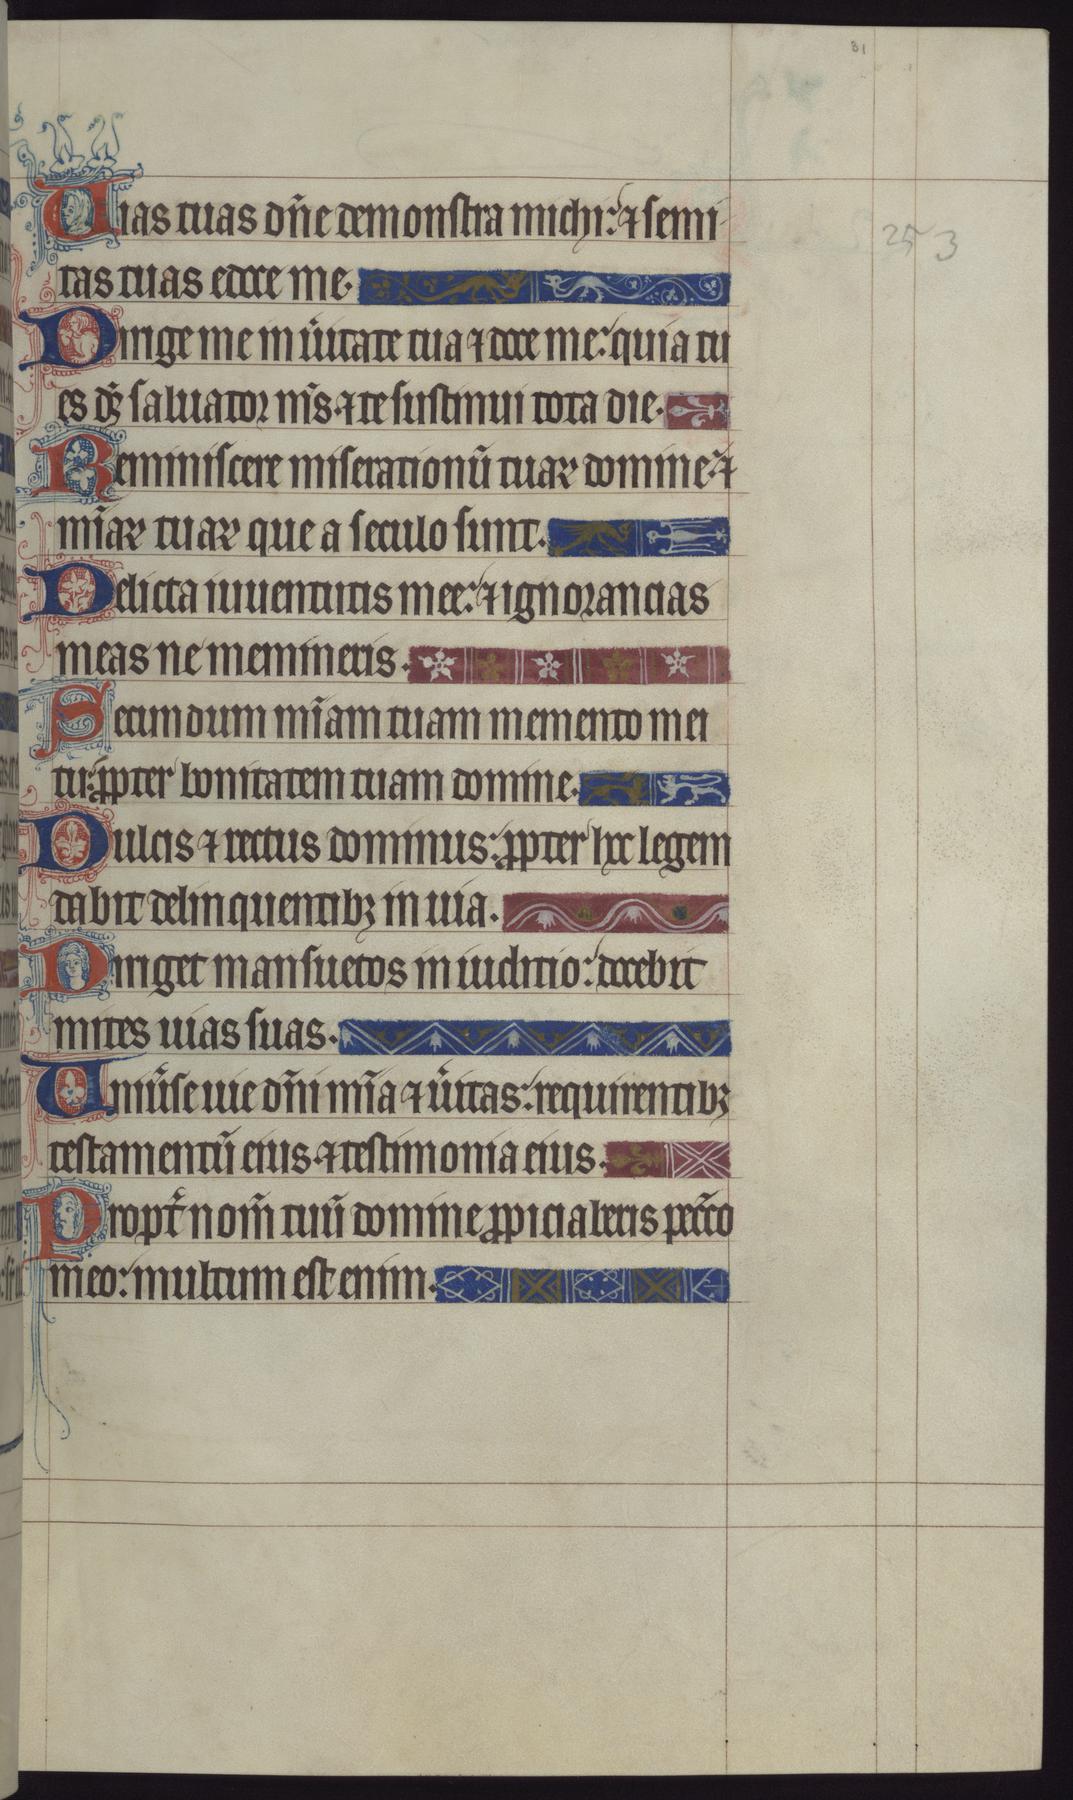 31
Uias tuas dn̄e demonstra michi: ⁊ semi
tas tuas edoce me.
253
Dirige me in ūitate tua ⁊ doce me: quia tu
es ds̄ saluator m̄s. ⁊ te sustinui tota die.
Reminiscere miserationū tuaꝝ domine: ⁊
mīaꝝ tuaꝝ que a seculo sunt.
Delicta iuuentutis mee: ⁊ ignorancias
meas ne memineris.
Secundum mīam tuam memento mei
tu: ꝓpter bonitatem tuam domine.
Dulcis ⁊ rectus dominus: ꝓpter hoc legem
dabit delinquentibꝫ in uia.
Diriget mansuetos in iudicio: docebit
mites uias suas.
Uniūse uie dn̄i mīa ⁊ ūitas: requirentibꝫ
testamentū eius ⁊ testimonia eius.
Propt̄ nom̄ tuū domine ꝓpiciaberis pecc̄o
meo: multum est enim.